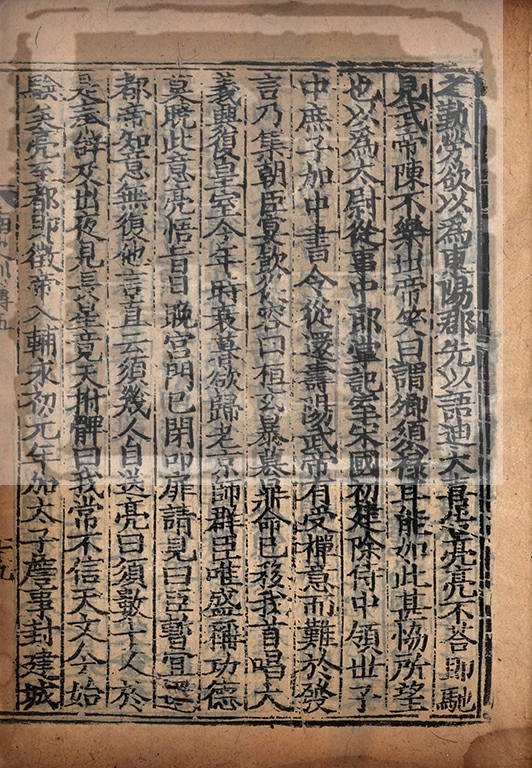 之勤勞欲以為東陽郡先以語迪大喜告亮亮不荅即馳
見武帝陳不樂出帝笑曰謂卿須祿耳能如此甚恊所望
也以為太尉從事中郎掌記室宋國初建除侍中領世子
中庶子加中書令從還壽陽武帝有受禪意而難於發
言乃集朝臣宴飲從容曰桓玄暴慕鼎命已移我首唱大
義興復皇室今年時衰暮欲歸老京師群臣唯盛稱功德
莫曉此意亮悟旨日晚宮門已閉叩扉請見曰臣暫宜還
都帝知意無復他言直云須幾人自送亮曰須數十人於
是奉辭及出夜見長星竟天拊髀曰我常不信天文今始
驗矣亮至都即徵帝入輔永初元年加太子詹事封建城